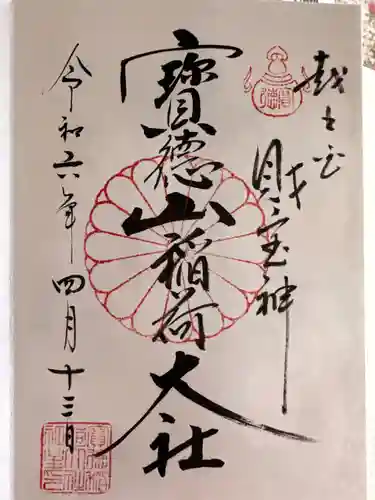 越之国
財宝神
寳德山稲荷大社
令和六年四月十三日